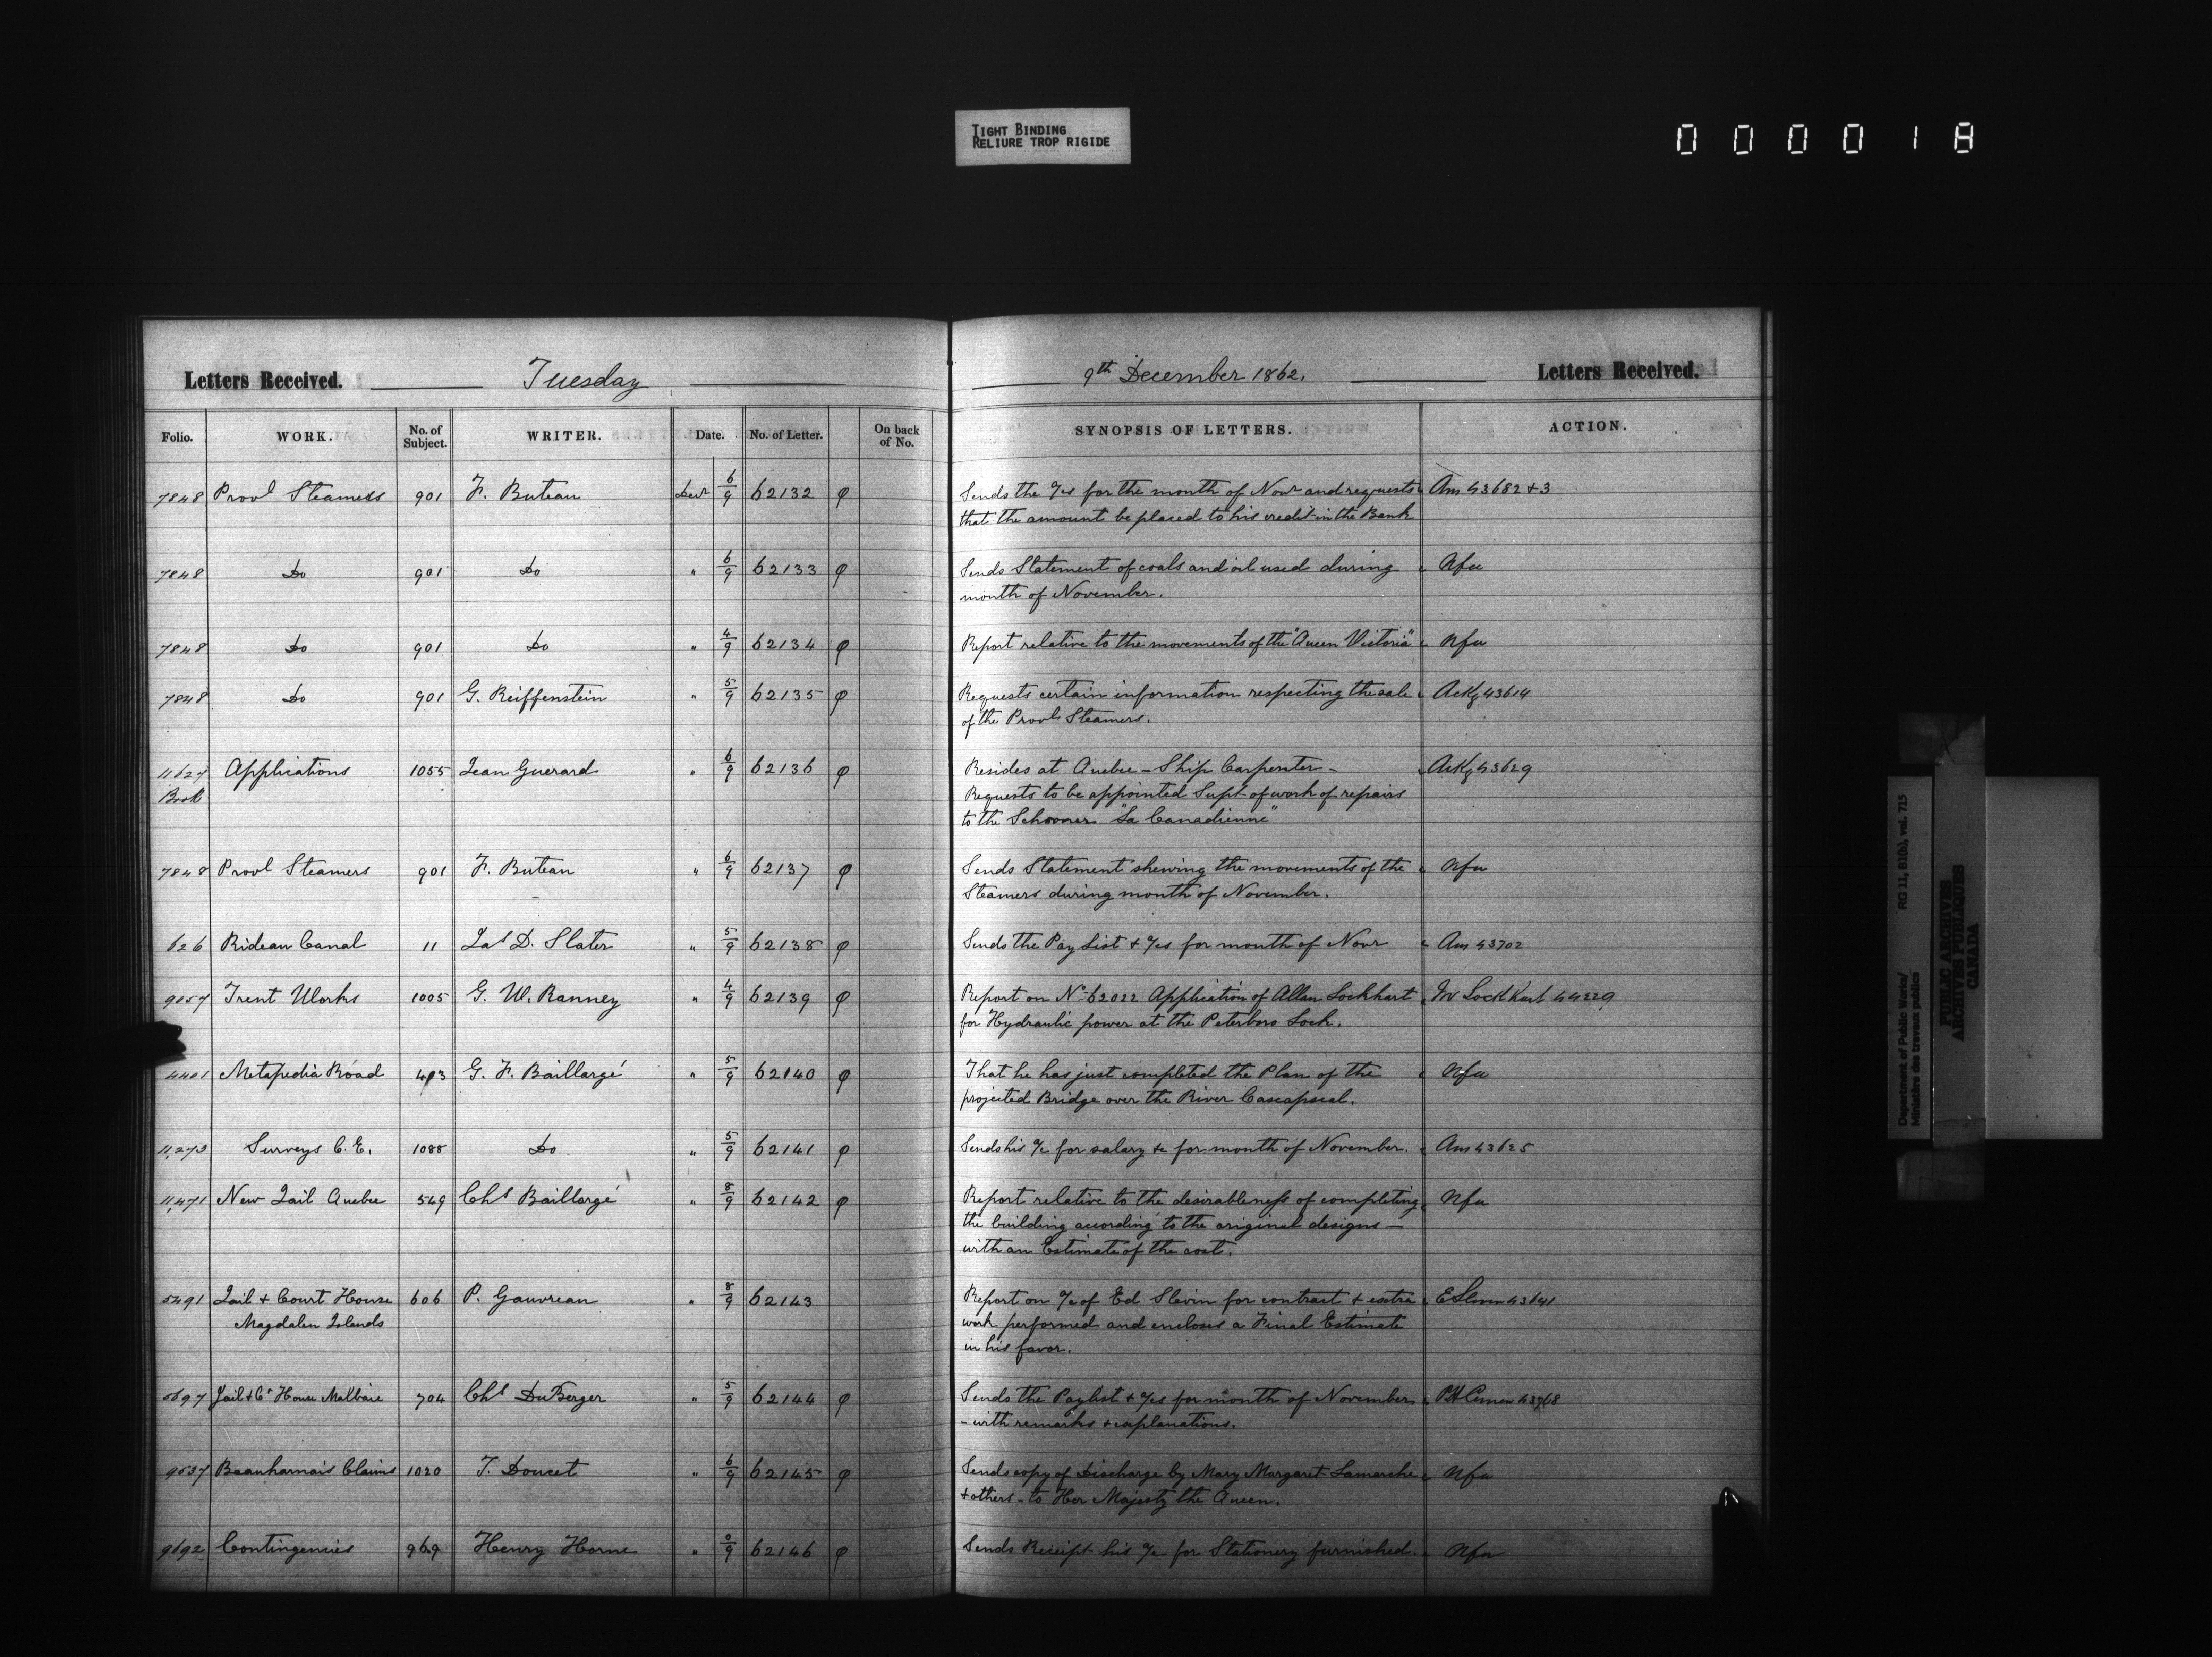 TIGHT BINDING
RELIURE TROP RIGIDE
000018
Letters Received. Tuesday 9th December 1862. Letters Received.
Folio. WORK. No. of Subject. WRITER. Date. No. of Letter. On back of No. SYNOPSIS OF LETTERS. ACTION.
7848 Provl Steamers 901 F. Buteau Decr 6/9 62132 φ Sends the a/cs for the month of Novr and requests Am 43682+3
that the amount be placed to his credit in the Bank
7848 Do 901 Do " 6/9 62133 φ Sends Statement of coals and oil used during Nfa
month of November.
7848 Do 901 Do " 4/9 62134 φ Report relative to the movements of the "Queen Victoria" Nfa
7848 Do 901 G. Reiffenstein " 5/9 62135 φ Requests certain information respecting the sale Ackg 43614
of the Provl Steamers.
11627 Applications 1055 Jean Guerard " 6/9 62136 φ Resides at Quebec - Ship Carpenter - Ackg 43629
Book Requests to be appointed Supt of work of repairs
to the Schooner "La Canadienne"
7848 Provl Steamers 901 F. Buteau " 6/9 62137 φ Sends Statement shewing the movements of the Nfa
Steamers during month of November.
626 Rideau Canal 11 Jas D. Slater " 5/9 62138 φ Sends the Pay List + a/cs for month of Novr Am 43702
9057 Trent Works 1005 G. W. Ranney " 4/9 62139 φ Report on No 62022 Application of Allan Lockhart Mr Lockhart 44229
for Hydraulic power at the Peterboro Lock.
4401 Metapedia Road 493 G. F. Baillargé " 5/9 62140 φ That he has just completed the Plan of the Nfa
projected Bridge over the River Cascapscal.
11,273 Surveys C. E. 1088 Do " 5/9 62141 φ Sends his a/c for salary &c for month of November. Am 43625
11,471 New Jail Quebec 549 Chs Baillargé " 8/9 62142 φ Report relative to the desirableness of completing Nfa
the building according to the original designs -
with an Estimate of the cost.
5491 Jail + Court House 606 P. Gauvreau " 8/9 62143 Report on a/c of Ed Slevin for contract + extra E Slevin 43641
Magdalen Islands work performed and encloses a Final Estimate
in his favor.
5697 Jail + Ct House Malbaie 704 Chs DuBerger " 5/9 62144 φ Sends the Paylist + a/cs for month of November 43768
- with remarks + explanations.
9537 Beauharnais Claims 1020 T. Doucet " 6/9 62145 φ Sends copy of Discharge by Mary Margaret Lamarche Nfa
+ others - to Her Majesty the Queen.
9692 Contingencies 969 Henry Horne " 0/9 62146 φ Sends Receipt his a/c for Stationery furnished. Nfa
Department of Public Works/
Ministère des travaux publics
RG 11, B1(b), vol. 715
PUBLIC ARCHIVES
ARCHIVES PUBLIQUES
CANADA